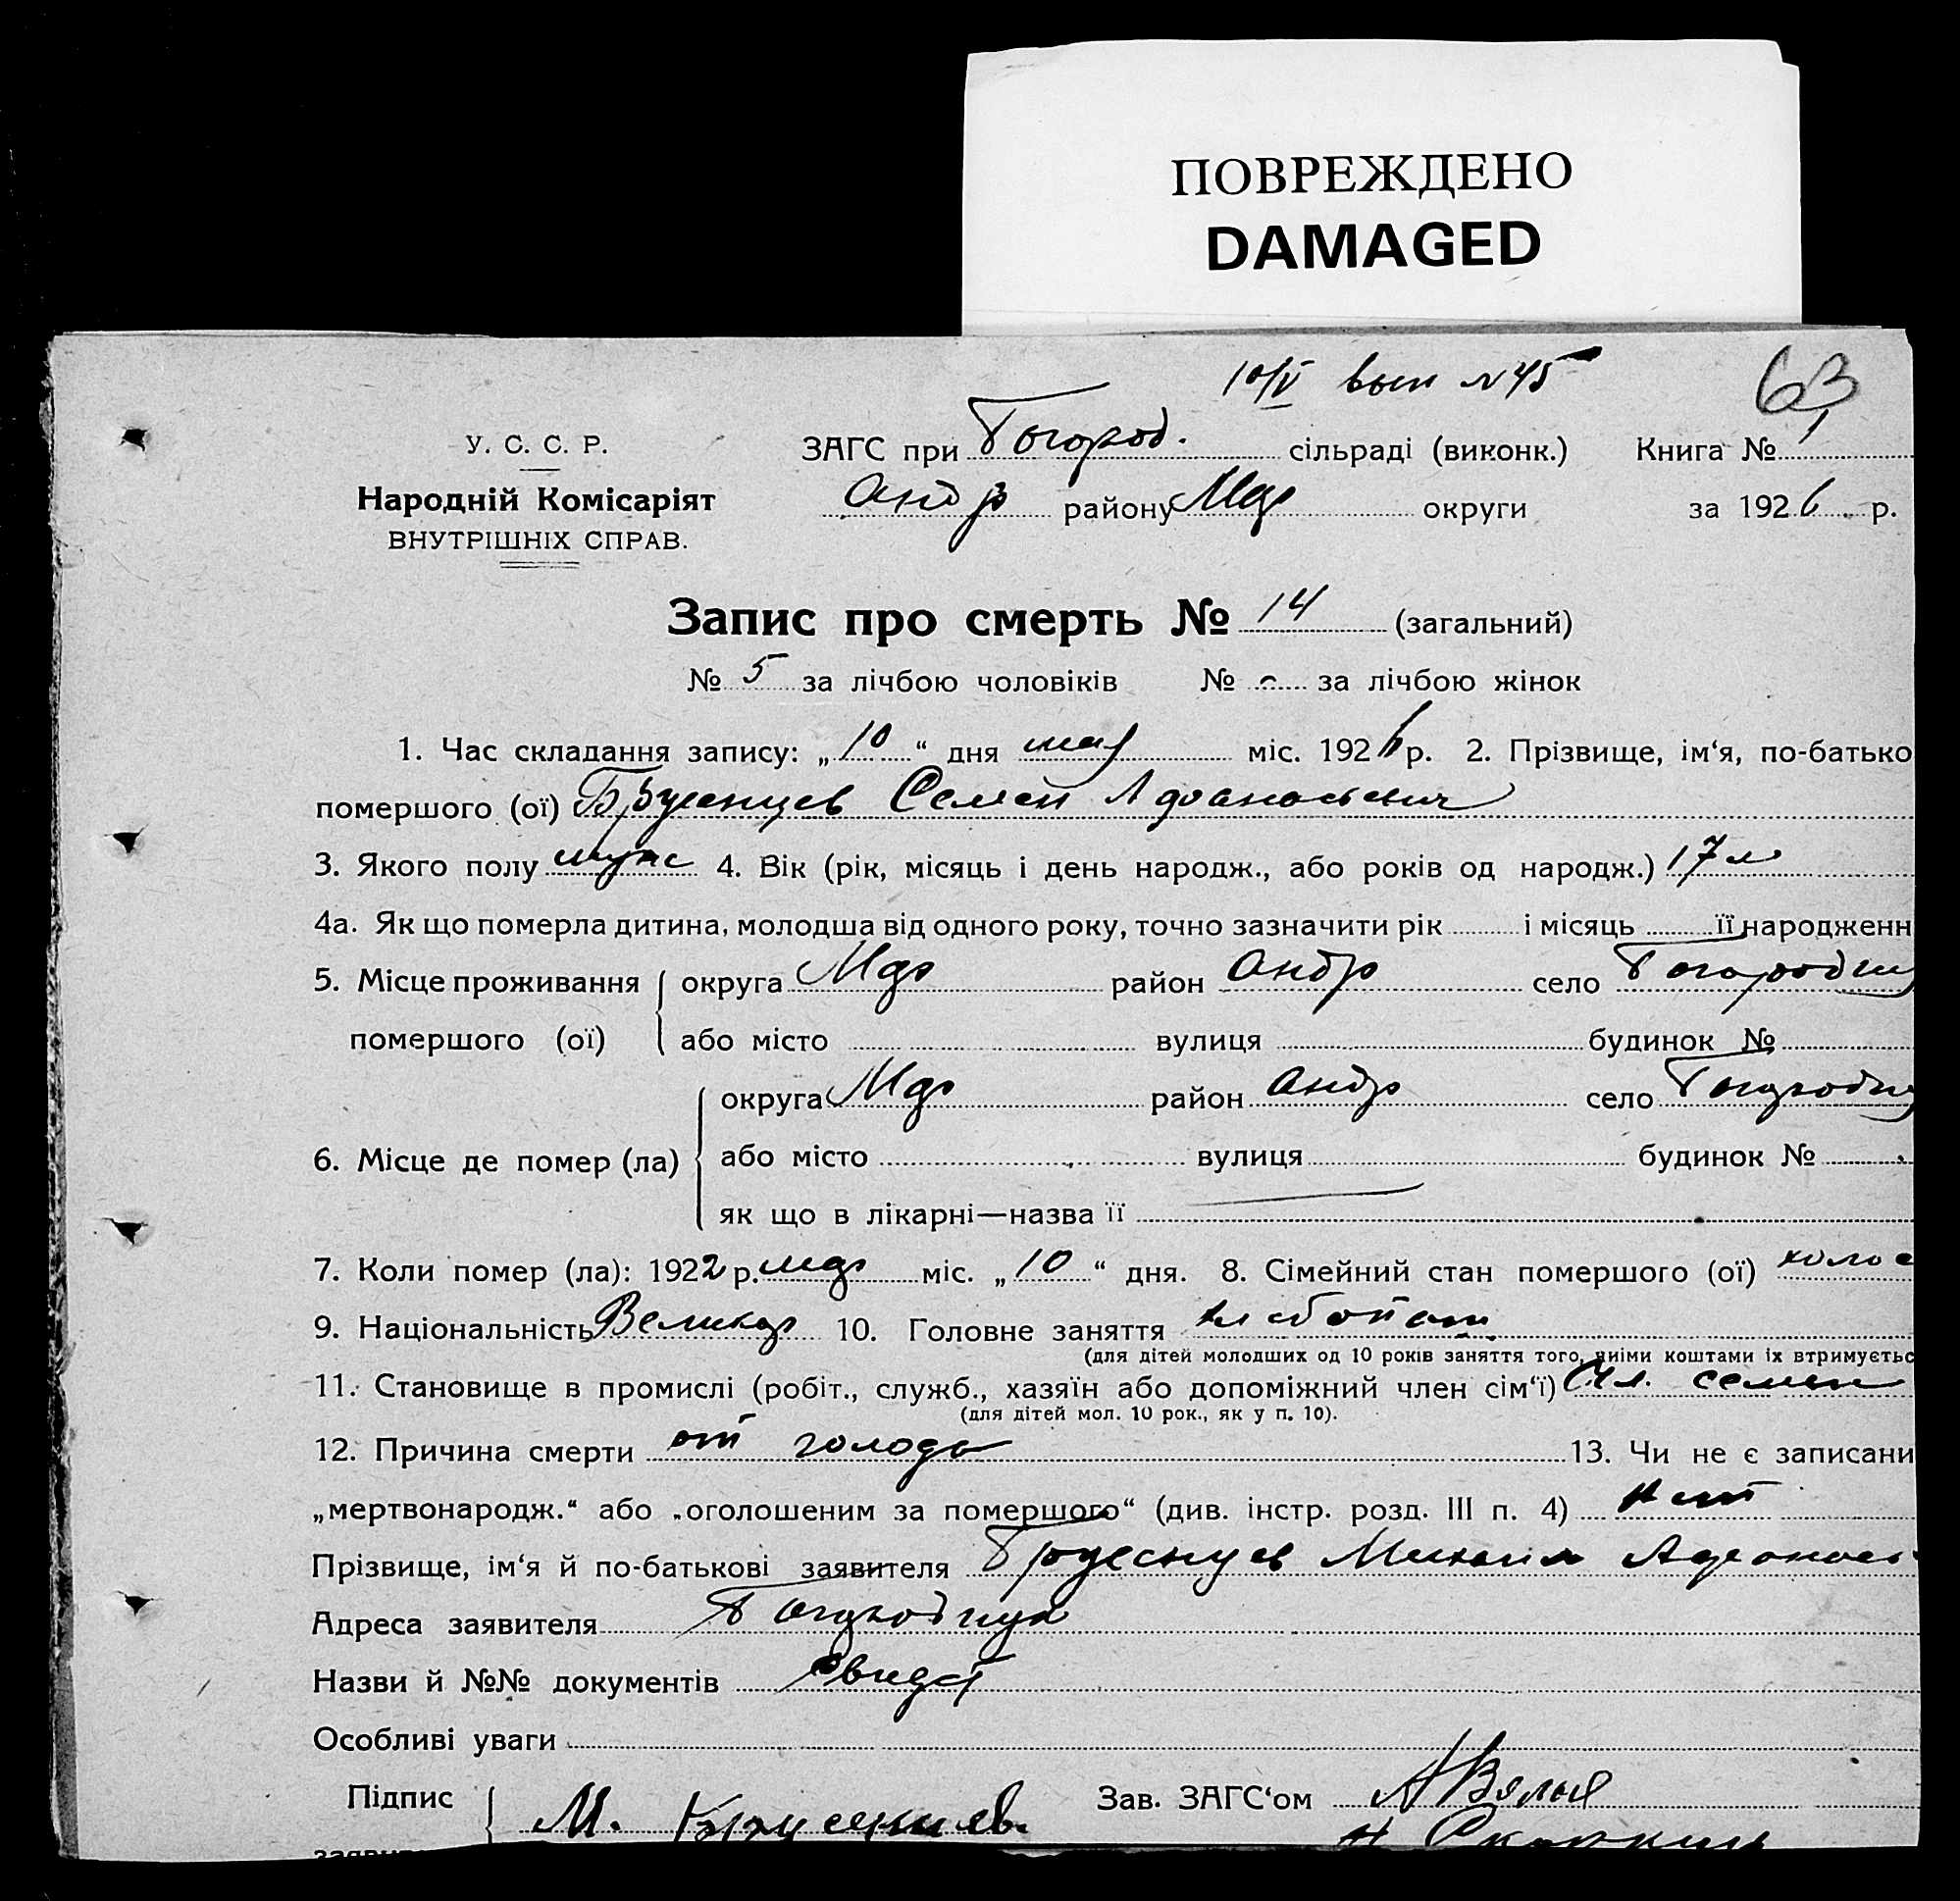 ПОВРЕЖДЕНО
DAMAGED
10/V вып №45
63
У. С. С. Р.
ЗАГС при Богород. сільраді (виконк.) Книга № 1
Народній Комісаріят
Андр району Мар округи за 1926 р.
ВНУТРІШНІХ СПРАВ.
Запис про смерть № 14 (загальний)
№ 5 за лічбою чоловіків № за лічбою жінок
1. Час складання запису: „10“ дня мая міс. 1926 р. 2. Прізвище, ім‘я, по-батько
помершого (ої) Семен Афанасьевич
3. Якого полу муж 4. Вік (рік, місяць і день народж., або років од народж.) 17 л
4а. Як що померла дитина, молодша від одного року, точно зазначити рік і місяць її народженн
5. Місце проживання округа Мар район Андр село
помершого (ої) або місто вулиця будинок №
округа Мар район Андр село
6. Місце де помер (ла) або місто вулиця будинок №
як що в лікарні—назва її
7. Коли помер (ла): 1922 р. мар міс. „10“ дня. 8. Сімейний стан помершого (ої) холос
9. Національність Великор 10. Головне заняття хлебопаш.
(для дітей молодших од 10 років заняття того, чиїми коштами їх втримуєтьс
11. Становище в промислі (робіт., служб., хазяїн або допоміжний член сім‘ї) Чл. семьи
(для дітей мол. 10 рок., як у п. 10).
12. Причина смерти от голода 13. Чи не є записани
„мертвонародж.“ або „оголошеним за помершого“ (див. інстр. розд. III п. 4) нет
Прізвище, ім‘я й по-батькові заявителя Михаил Афанась
Адреса заявителя
Назви й №№ документів свидет
Особливі уваги
Підпис М. Зав. ЗАГС‘ом